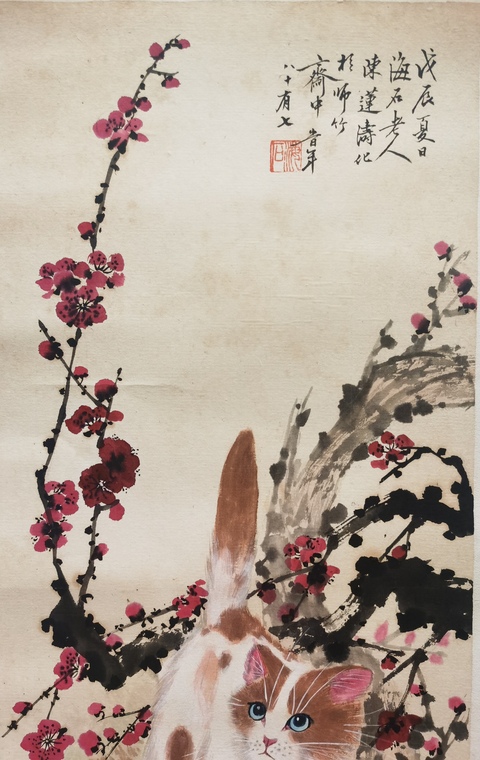 戊辰夏日
海石老人
陳蓮濤作
於師竹
齋中旹年
八十有七
海石